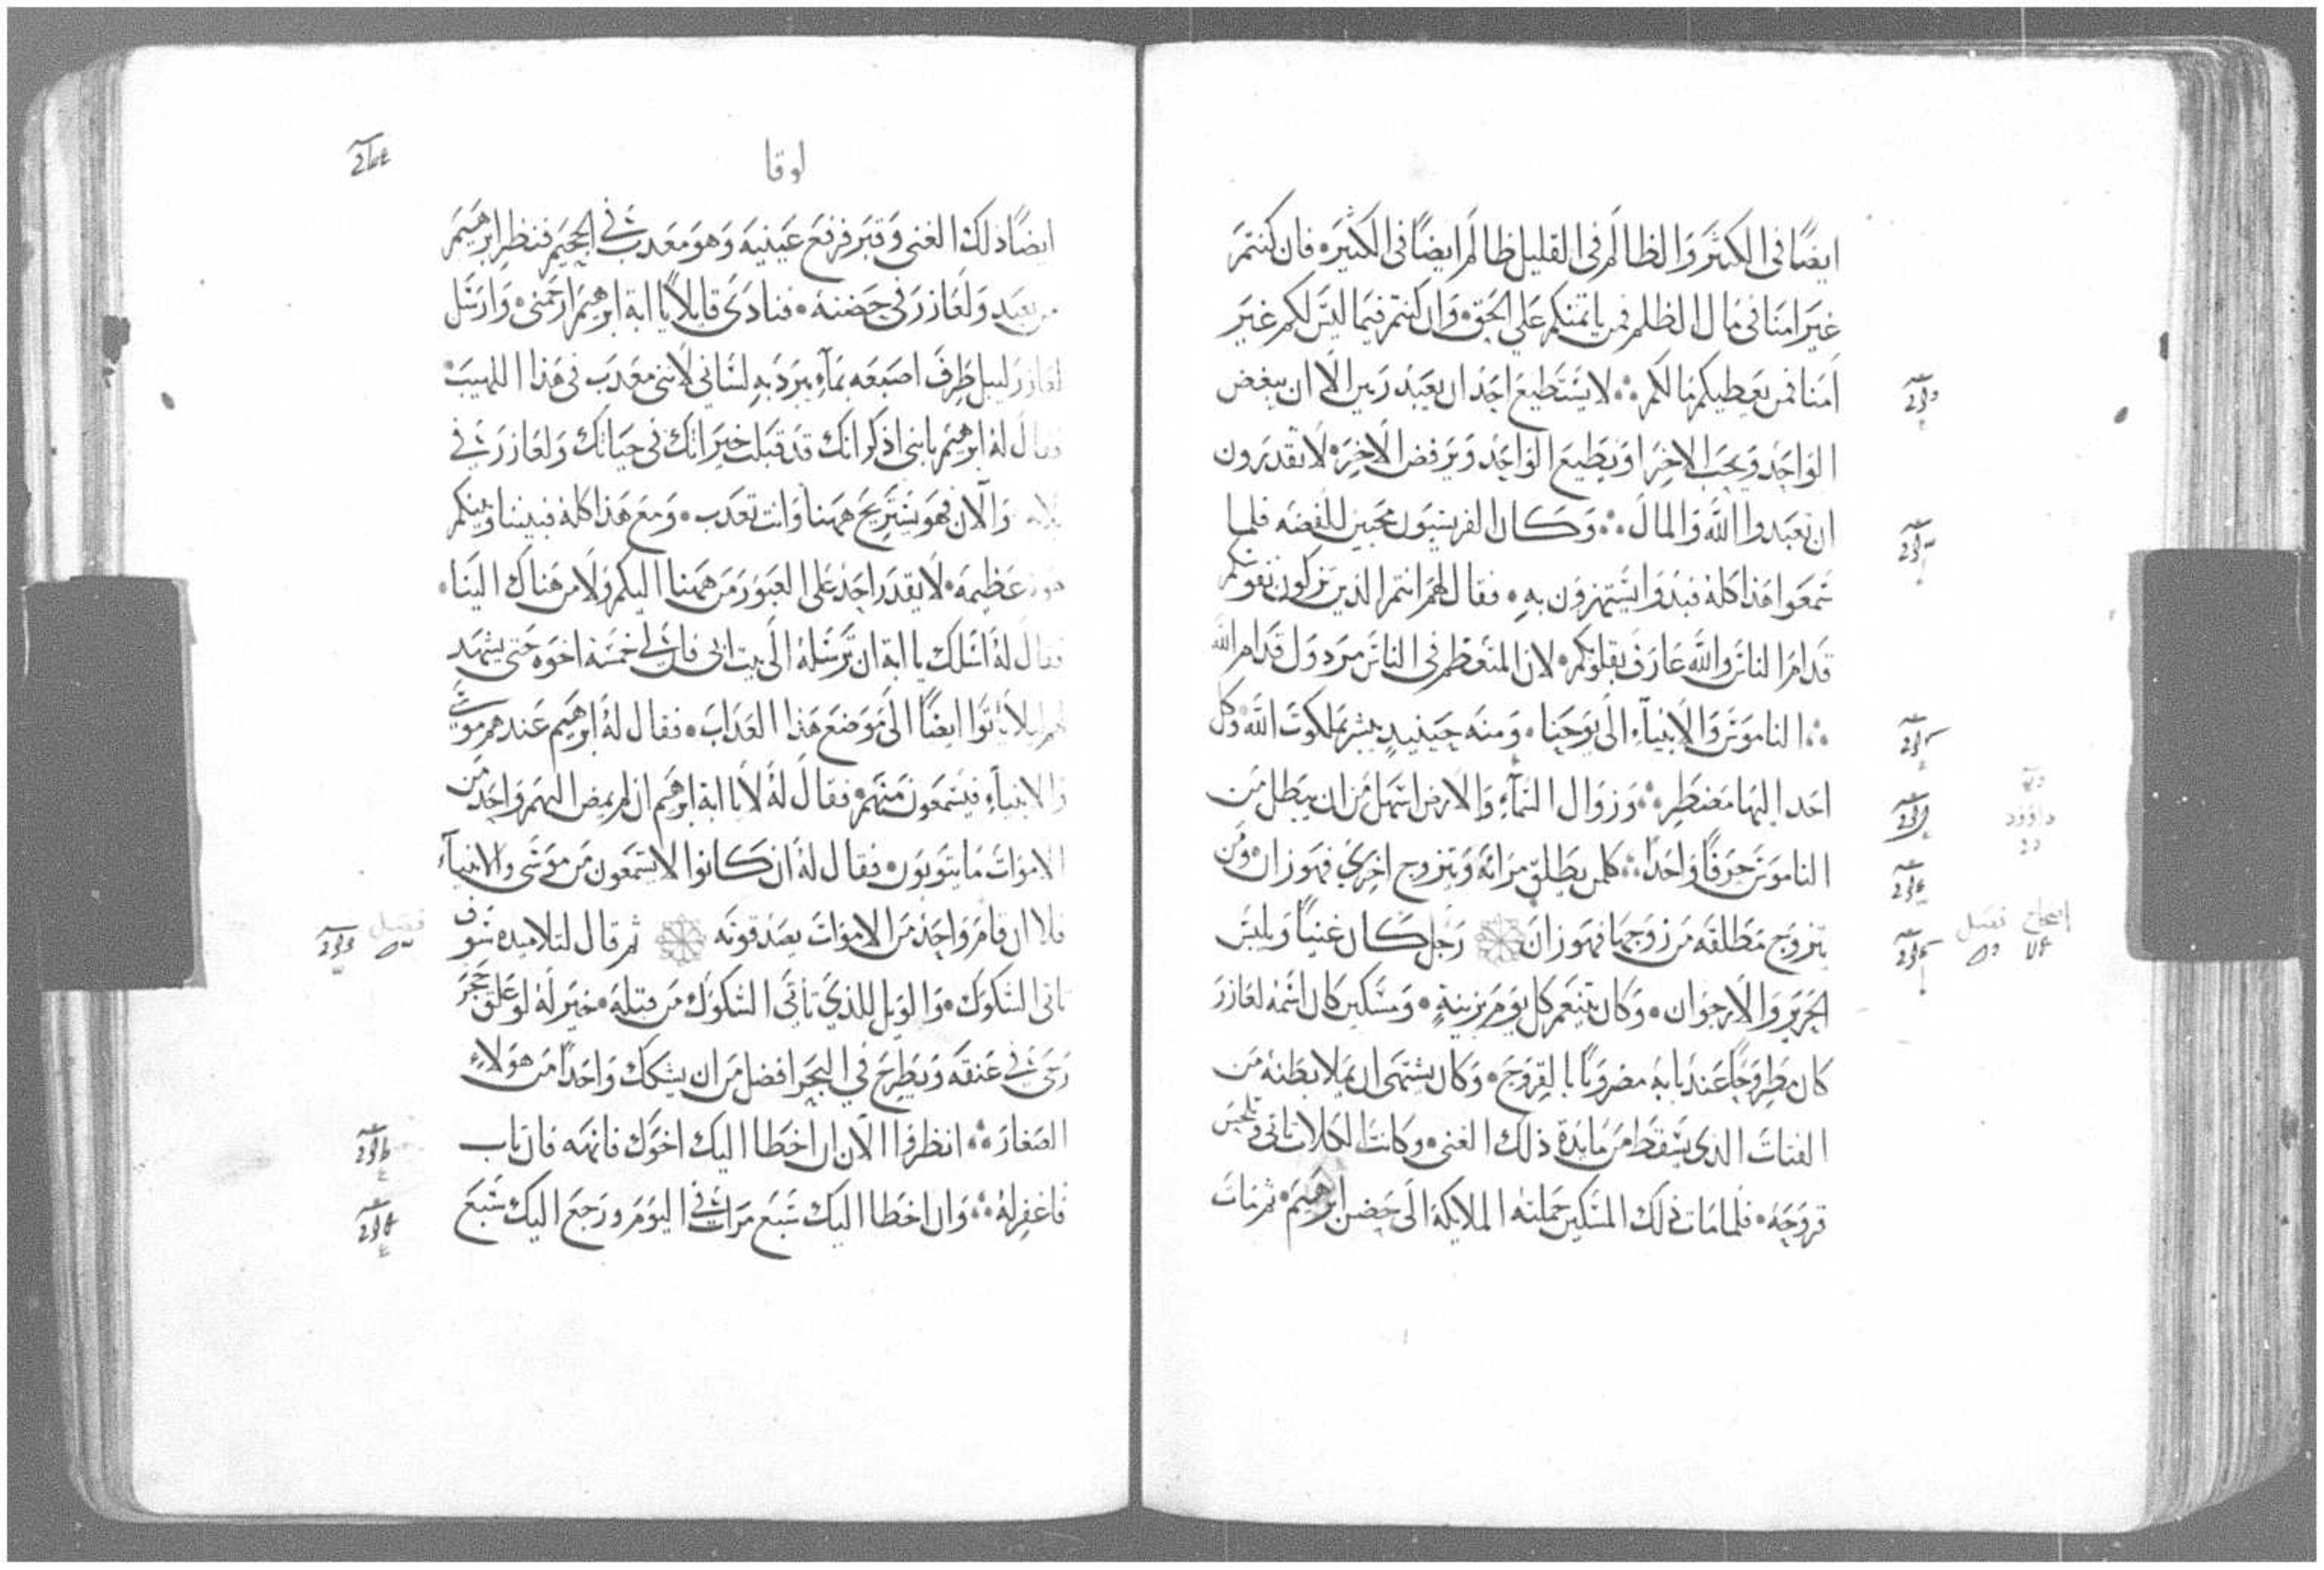 ايضًا في الكثير والظالم في القليل ظالم ايضًا في الكثيره فان كنتم
غير امنا في مال الظلم فمن ياتمنكم علي الحق وان كنتم فيما ليس لكم غير
امنا فمن يعطيكم مالكم لا يستطيع احد ان يعبد ربين الا ان يبغض
الواحد ويحب الاخر او يطيع الواحد ويرفض الاخر لا تقدرون
ان تعبدوا الله والمال وكان الفريسيون محبين للفضه فلما
سمعوا هذا كله فبدوا يستهزون به فقال لهم انتم الذين تزكون نفوسكم
قدام الناس والله عارف بقلوبكم لان المتعظم في الناس مردول قدام الله
الناموس والانبياء الى يوحنا ومنه حينيد يبشر بملكوت الله وكل
احد اليها مضطر وزوال السماء والارض اسهل من ان يبطل من
الناموس حرفًا واحدًا كلمن يطلق مراته ويتزوج اخري فهو زان ومن
يتزوج مطلقه من زوجها فهو زان رجل كان غنيًا ويلبس
الحرير والارجوان وكان يتنعم كل يوم بزينة ومسكين كان اسمه لعازر
كان مطروحًا عند بابه مضروبًا بالقروح وكان يشتهي ان يملا بطنه من
الفتات الدي يسقط من مايدة ذلك الغني وكانت الكلاب تاتي وتلحس
قروحه فلما مات ذلك المسكين حملته الملايكة الى حضن ابرهيم ثم مات
لوقا
ايضًا ذلك الغني وقبر فرفع عينيه وهو معدب في الجحيم فنظر ابرهيم
من بعيد ولعازر في حضنه فنادى قايلًا يا ابة ابرهيم ارحمني وارسل
لعازر ليبل طرف اصبعه بماء يبرد به لساني لانني معدب في هذا اللهيب
فقال له ابرهيم يا بني اذكر انك قد قبلت خيراتك في حياتك ولعازر في
بلاه والآن فهو يستريح ههنا وانت تعدب ومع هذا كله فبيننا وبينكم
هوة عظيمه لا يقدر احد على العبور من ههنا اليكم ولا من هناك الينا
فقال له اسلك يا ابة ان ترسله الى بيت ابي فان لي خمسة اخوه حتى يشهد
لهم ليلا ياتوا ايضًا الى موضع هذا العداب فقال له ابرهيم عندهم موسى
والانبياء فيسمعون منهم فقال له لا يا ابة ابرهيم ان لم يمض اليهم واحد من
الاموات ما يتوبون فقال له ان كانوا لا يسمعون من موسى والانبياء
فلا ان قام واحد من الاموات يصدقونه ثم قال لتلاميده سوف
تاتى الشكوك والويل للذي تاتى الشكوك من قبله خير له لو علق حجر
رحى في عنقه ويطرح في البحر افضل من ان يشكك واحدًا من هولاء
الصغار انظروا الان ان اخطا اليك اخوك فانهه فان تاب
فاغفر له وان اخطا اليك سبع مرات في اليوم ورجع اليك سبع
فصل